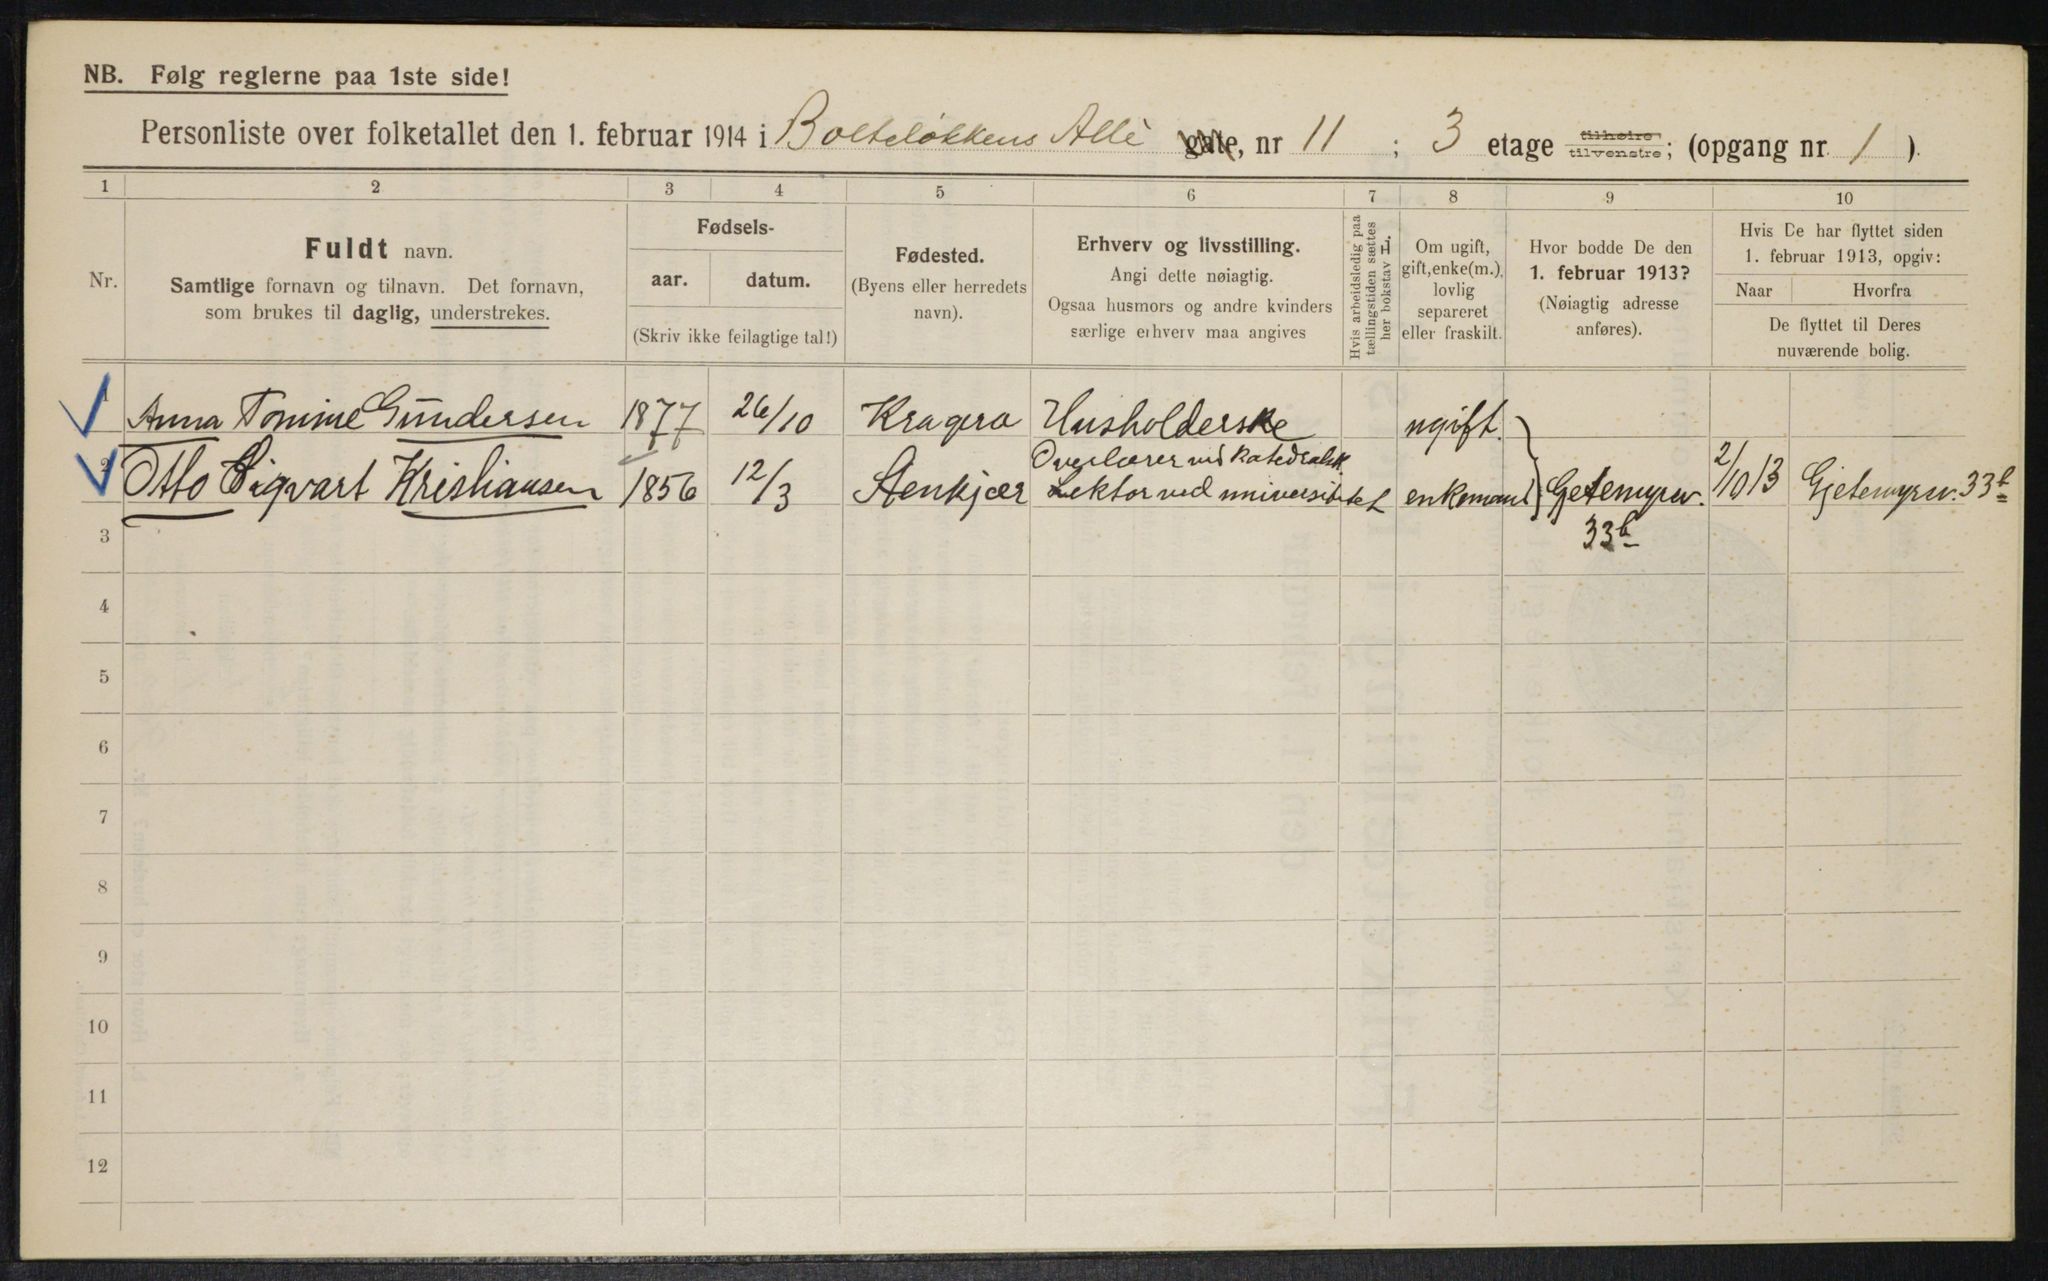 NB. Følg reglerne paa 1ste side!
Personliste over folketallet den 1. februar 1914 i Bolteløkkens Allè gate, nr 11 ; 3 etage tilhøire tilvenstre; (opgang nr. 1 ).
1 2 3 4 5 6 7 8 9 10
Nr.
Fuldt navn.
Samtlige fornavn og tilnavn. Det fornavn,
som brukes til daglig, understrekes.
Fødsels-
aar. datum.
(Skriv ikke feilagtige tal!)
Fødested.
(Byens eller herredets
navn).
Erhverv og livsstilling.
Angi dette nøiagtig.
Ogsaa husmors og andre kvinders
særlige erhverv maa angives
Hvis arbeidsledig paa
tællingstiden sættes
her bokstav L.
Om ugift,
gift, enke(m.),
lovlig
separeret
eller fraskilt.
Hvor bodde De den
1. februar 1913?
(Nøiagtig adresse
anføres).
Hvis De har flyttet siden
1. februar 1913, opgiv:
Naar Hvorfra
De flyttet til Deres
nuværende bolig.
1 Anna Tomine Gundersen 1877 26/10 Kragerø Husholderske ugift.
Overlærer ved Katedralsk.
2 Otto Sigvart Kristiansen 1856 12/3 Stenkjær Lektor ved universitetet enkemand Gjetemyrsv. 2/10 13 Gjetemyrsv. 33b
33b
3
4
5
6
7
8
9
10
11
12